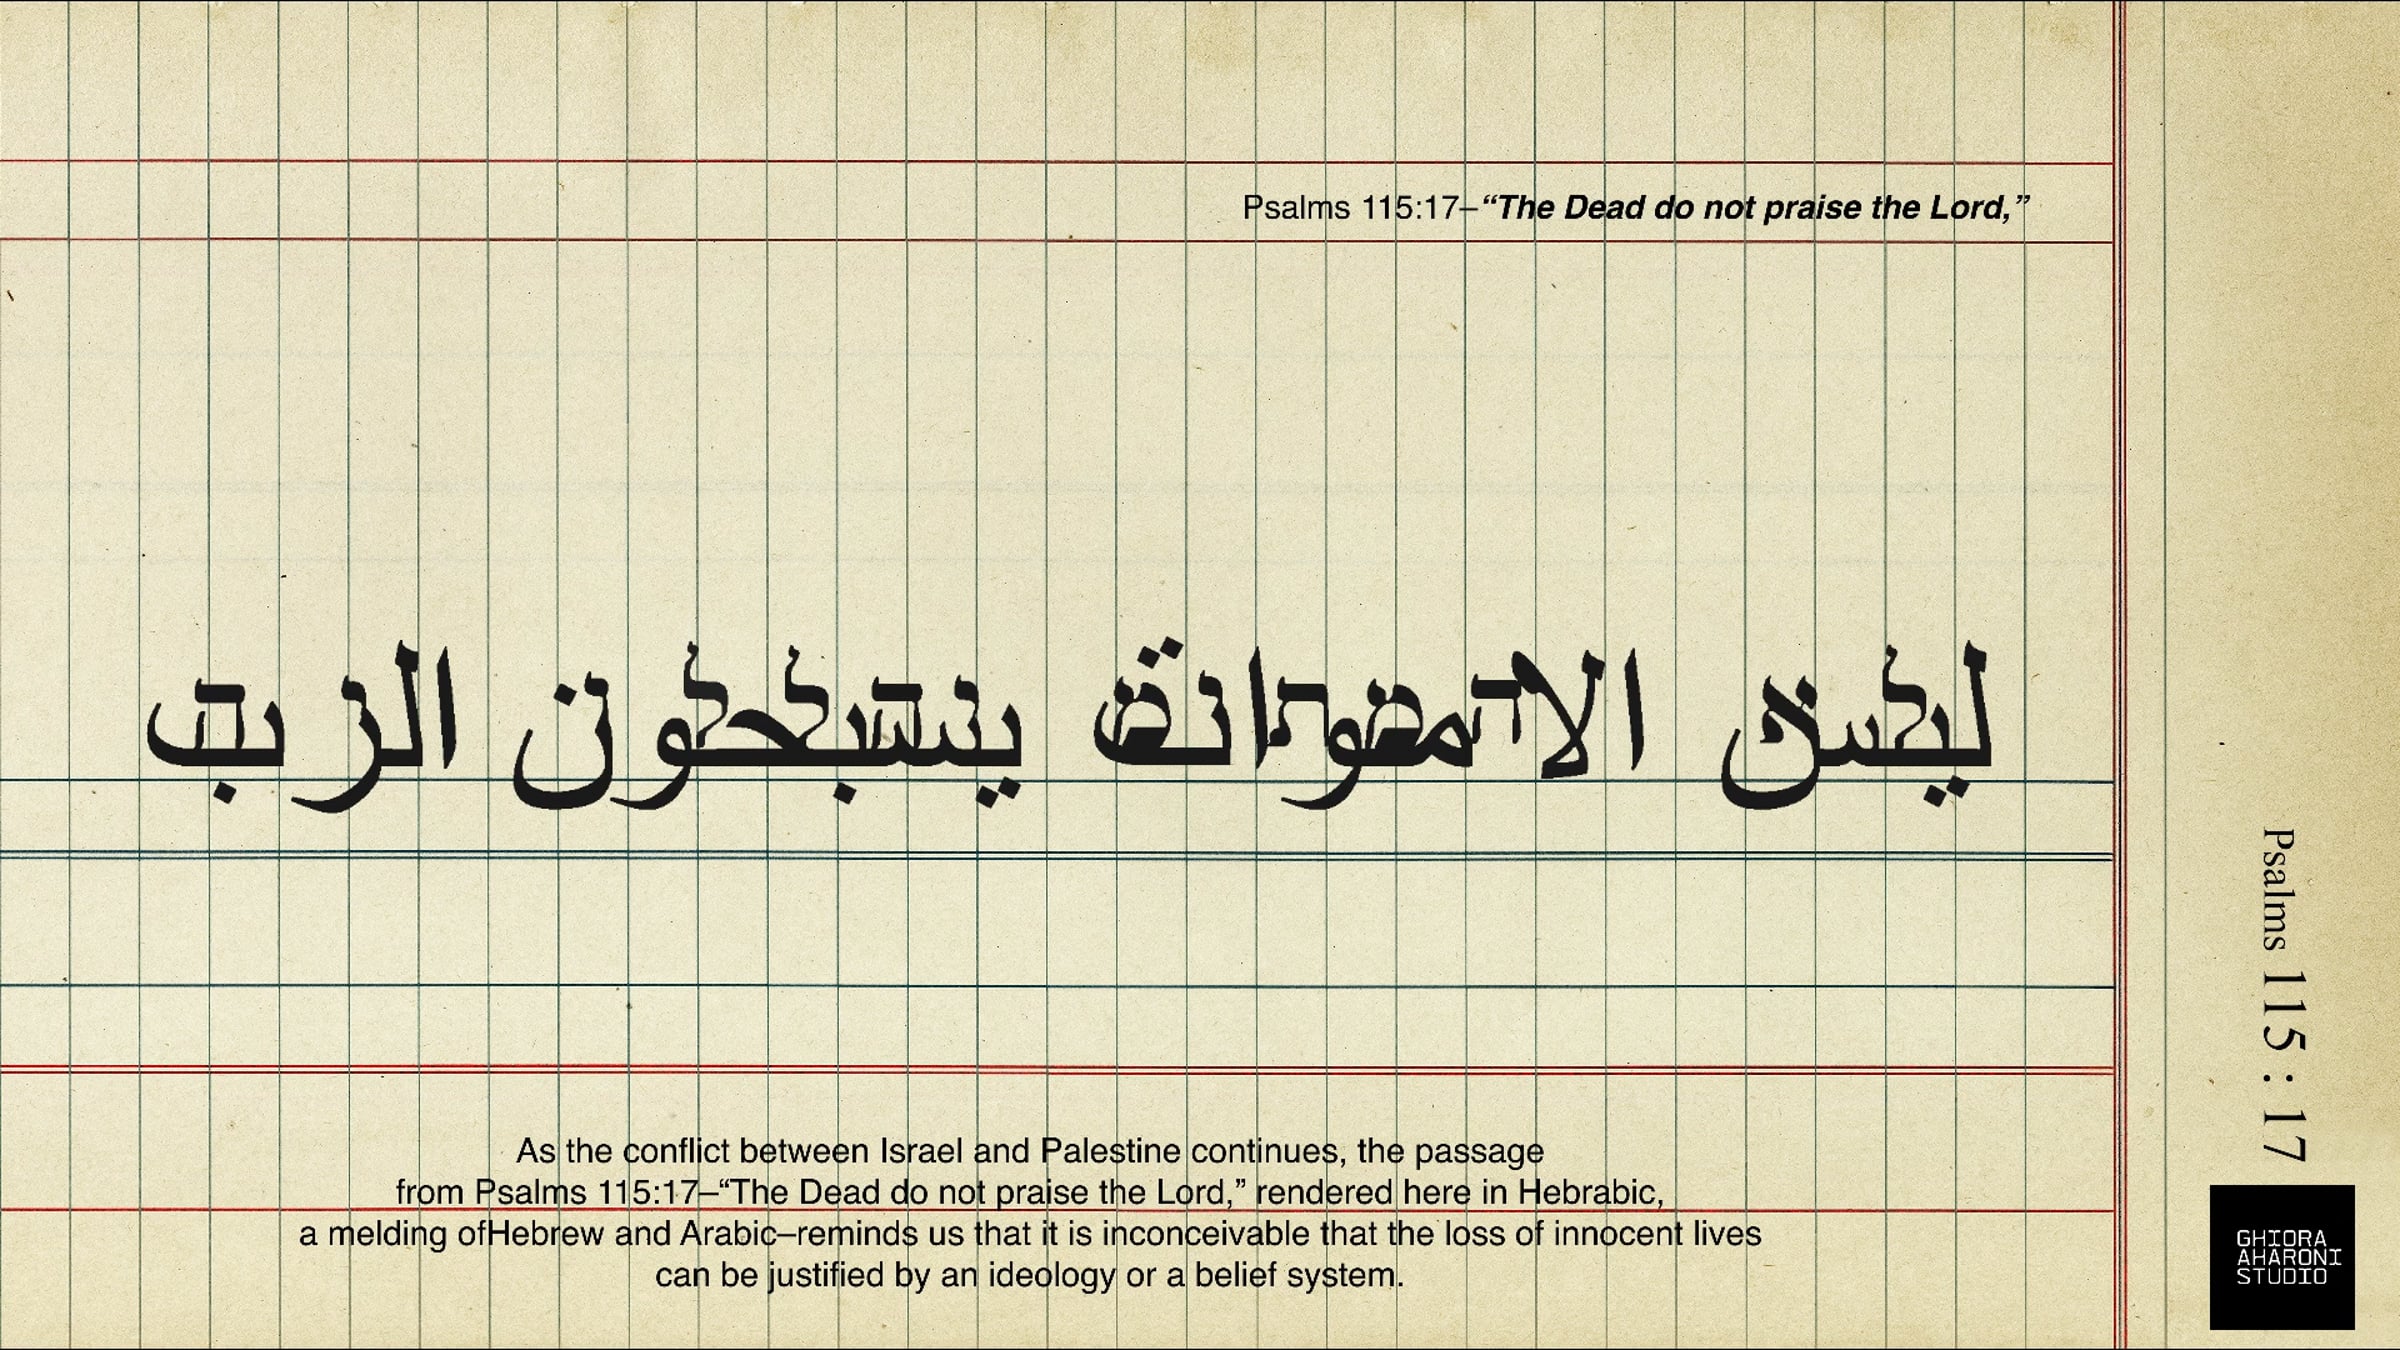 Psalms 115:17–“The Dead do not praise the Lord,”
ليس الاموات يسبحون الرب
Psalms 115:17
As the conflict between Israel and Palestine continues, the passage
from Psalms 115:17–“The Dead do not praise the Lord,” rendered here in Hebrabic,
a melding ofHebrew and Arabic–reminds us that it is inconceivable that the loss of innocent lives
can be justified by an ideology or a belief system.
GHIORA
AHARONI
STUDIO